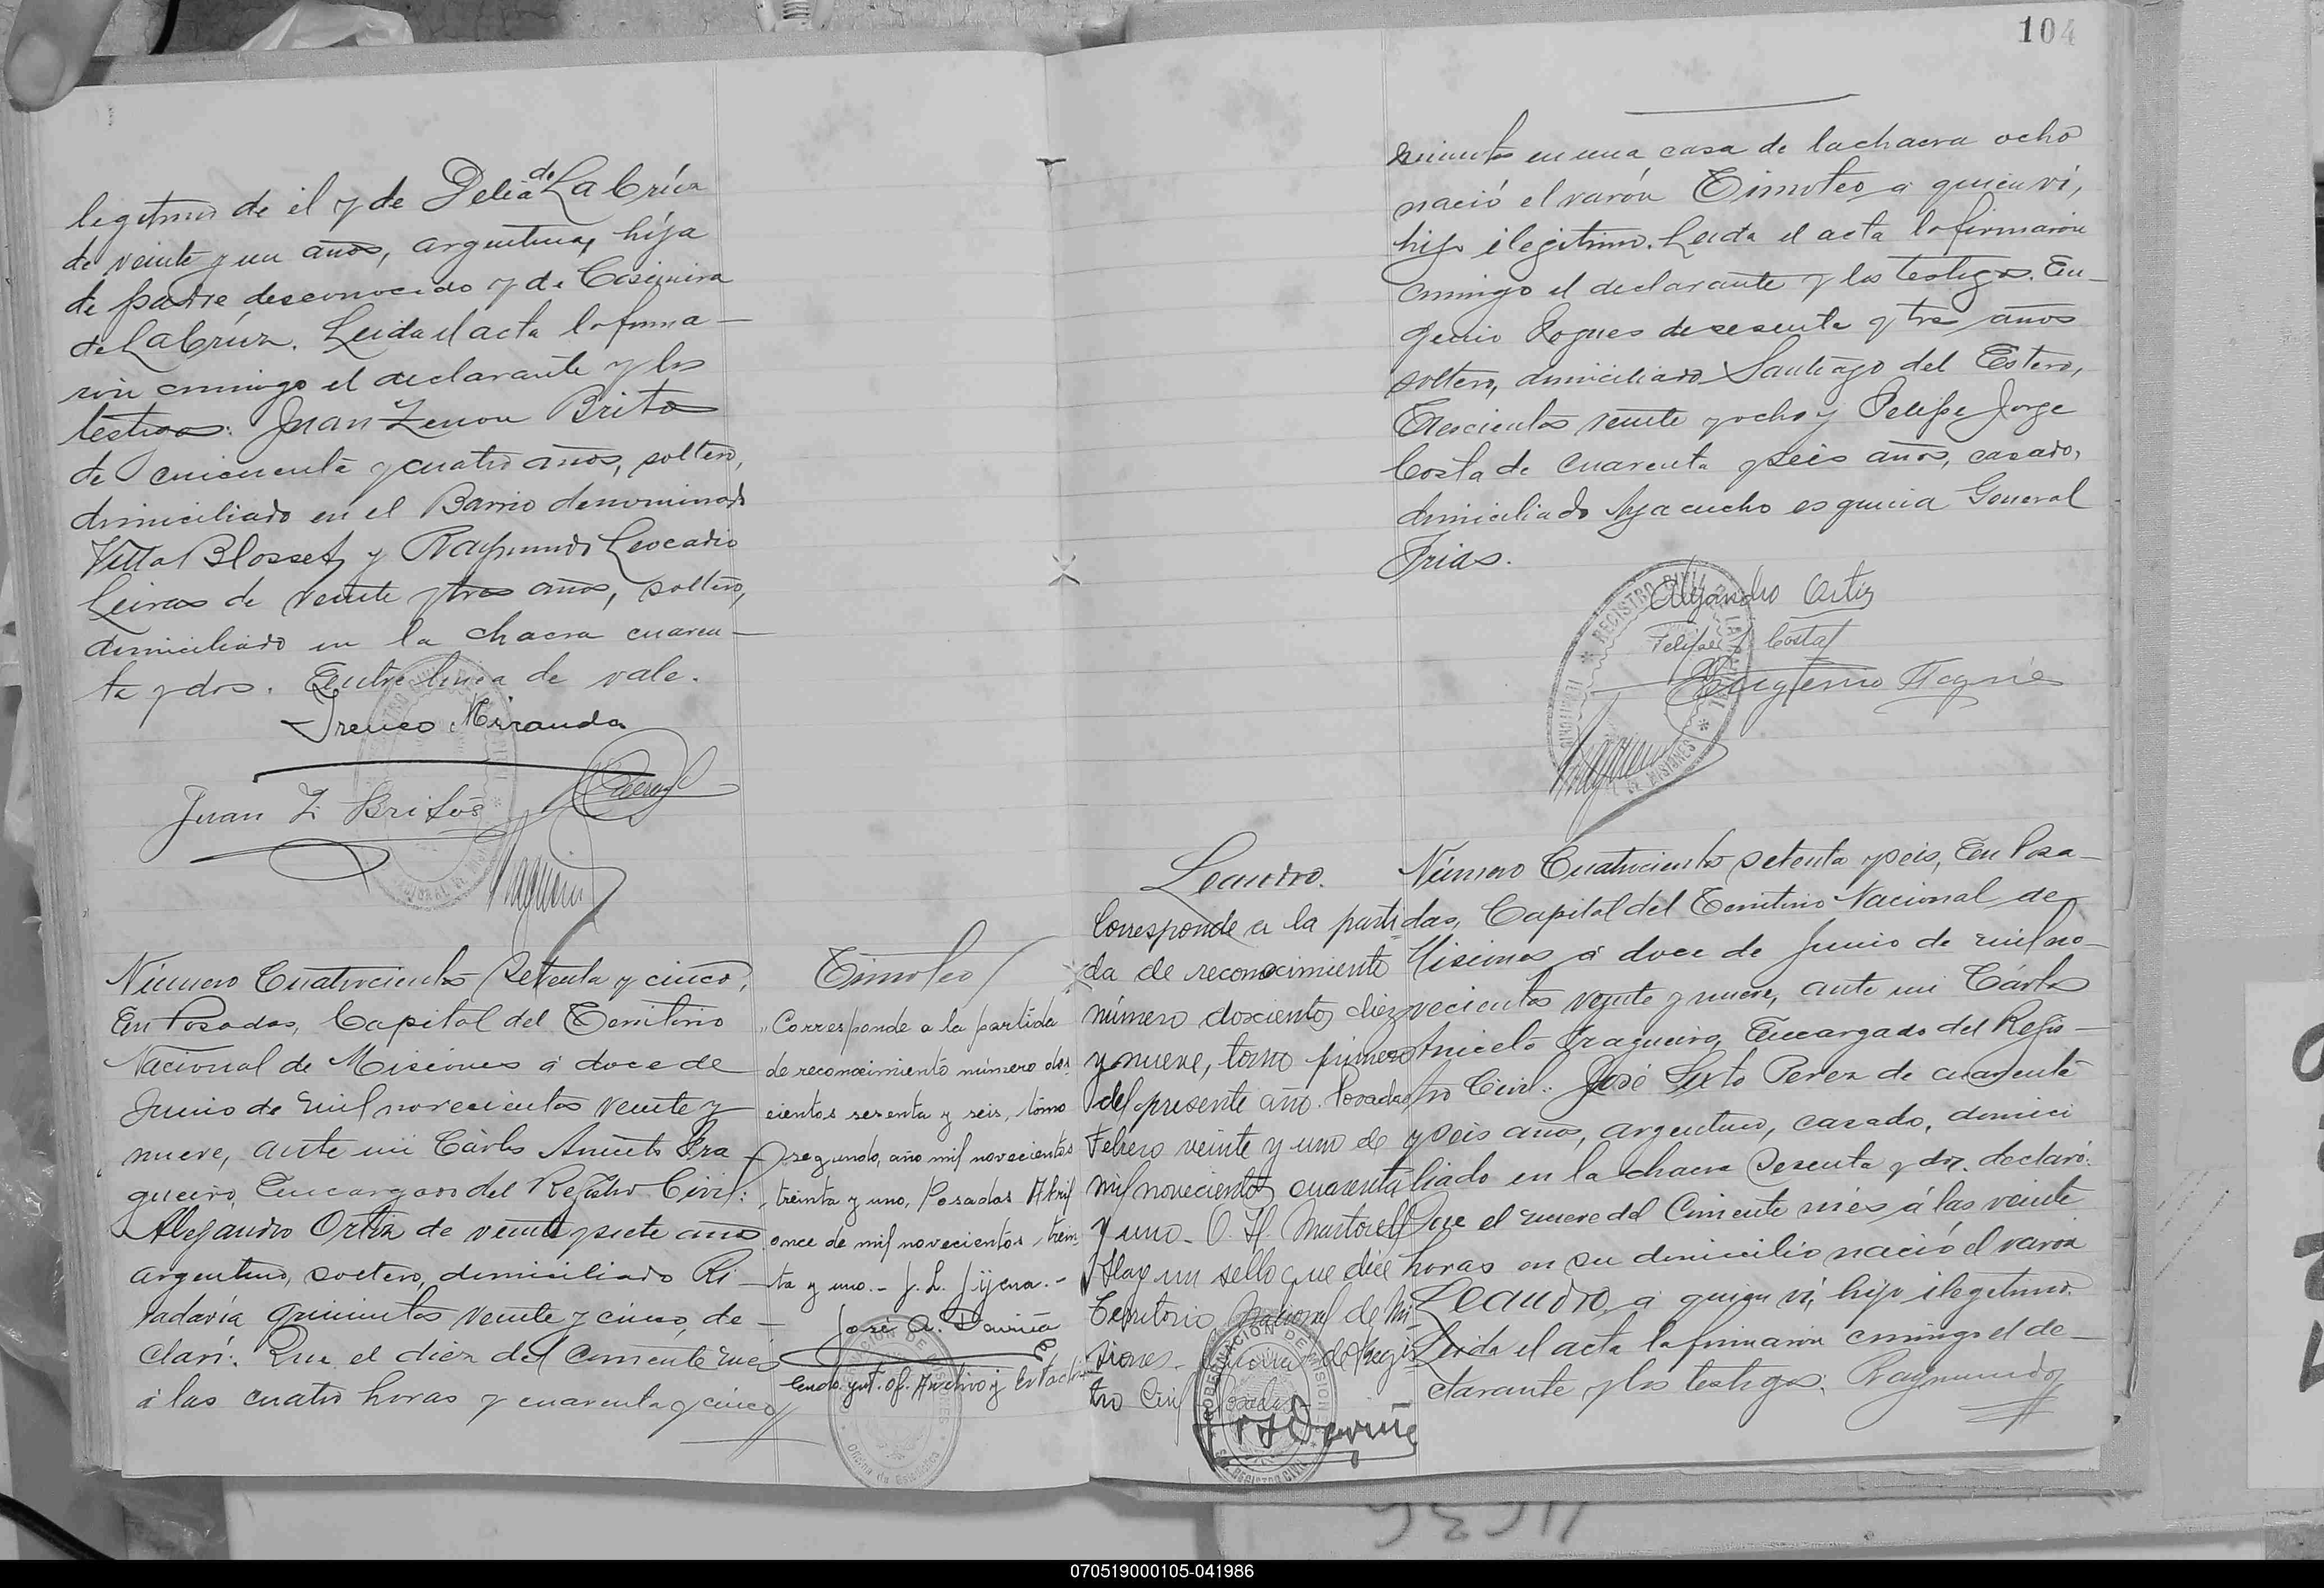 legitimo de él y de Delia de La Crúz
de veinte y un años, argentina, hija
de padre desconocido y de Casimira
de La Crúz. Leida el acta la firma-
ron conmigo el declarante y los
testigos: Juan Zenon Brito
de cincuenta y cuatro años, soltero,
domiciliado en el Barrio denominado
Villa Blosset, y Raymundo Leocadio
Leiras de veinte y tres años, soltero,
domiciliado en la chacra cuaren-
ta y dos. Entre linea de vale.
Ireneo Miranda
Juan Z. Britos
Número Cuatrocientos Setenta y cinco,
En Posadas, Capital del Territorio
Nacional de Misiones á doce de
Junio de mil novecientos veinte y
nueve, ante mi Cárlos Aniceto Fra-
gueiro, Encargado del Registro Civil:
Alejandro Ortiz de veinte y siete años
argentino, soltero, domiciliado Ri-
vadavia quinientos veinte y cinco, de-
claró: Que el diez del corriente mes
á las cuatro horas y cuarenta y cinco
Timoteo
"Corresponde a la partida
de reconocimiento número dos
cientos sesenta y seis, tomo
segundo, año mil novecientos
treinta y uno, Posadas Abril
once de mil novecientos trein
ta y uno.- J. L. Jijena.-
José A.
Encdo. Int. of. Archivo y Estadist
Oficina de Estadistica
104
minutos en una casa de la chacra ocho
nació el varón Timoteo a quien ví,
hijo ilegitimo. Leida el acta la firmaron
conmigo el declarante y los testigos. Eu-
genio Rognes de sesenta y tres años
soltero, domiciliado Santiago del Estero,
Trescientos veinte y ocho y Felipe Jorge
Costa de cuarenta y seis años, casado,
domiciliado Ayacucho esquina General
Frias.
REGISTRO CIVIL
MISIONES
Alejandro Ortiz
Felipe J. Costa
Eugenio
Leandro.
Corresponde a la parti-
da de reconocimiento
número doscientos diez
y nueve, tomo primero
del presente año. Posadas
Febrero veinte y uno de
mil novecientos cuarenta
y uno. O. H. Martorell
Hay un sello que dice
Territorio Nacional de Mi-
siones. de Regis
tro Civil Posadas.
GOBERNACION DE MISIONES
REGISTRO CIVIL
Número Cuatrocientos setenta y seis, En Posa-
das, Capital del Territorio Nacional de
Misiones á doce de Junio de mil no-
vecientos veinte y nueve, ante mi Cárlos
Aniceto Fragueiro, Encargado del Regis-
tro Civil: José Sixto Perez de cuarenta
y seis años, argentino, casado, domici
liado en la chacra Sesenta y dos. declaró:
Que el nueve del Corriente mes á las veinte
horas en su domicilio nació el varón
Leandro, a quien ví, hijo ilegitimo.
Leida el acta la firmaron conmigo el de-
clarante y los testigos: Raymundo
070519000105-041986